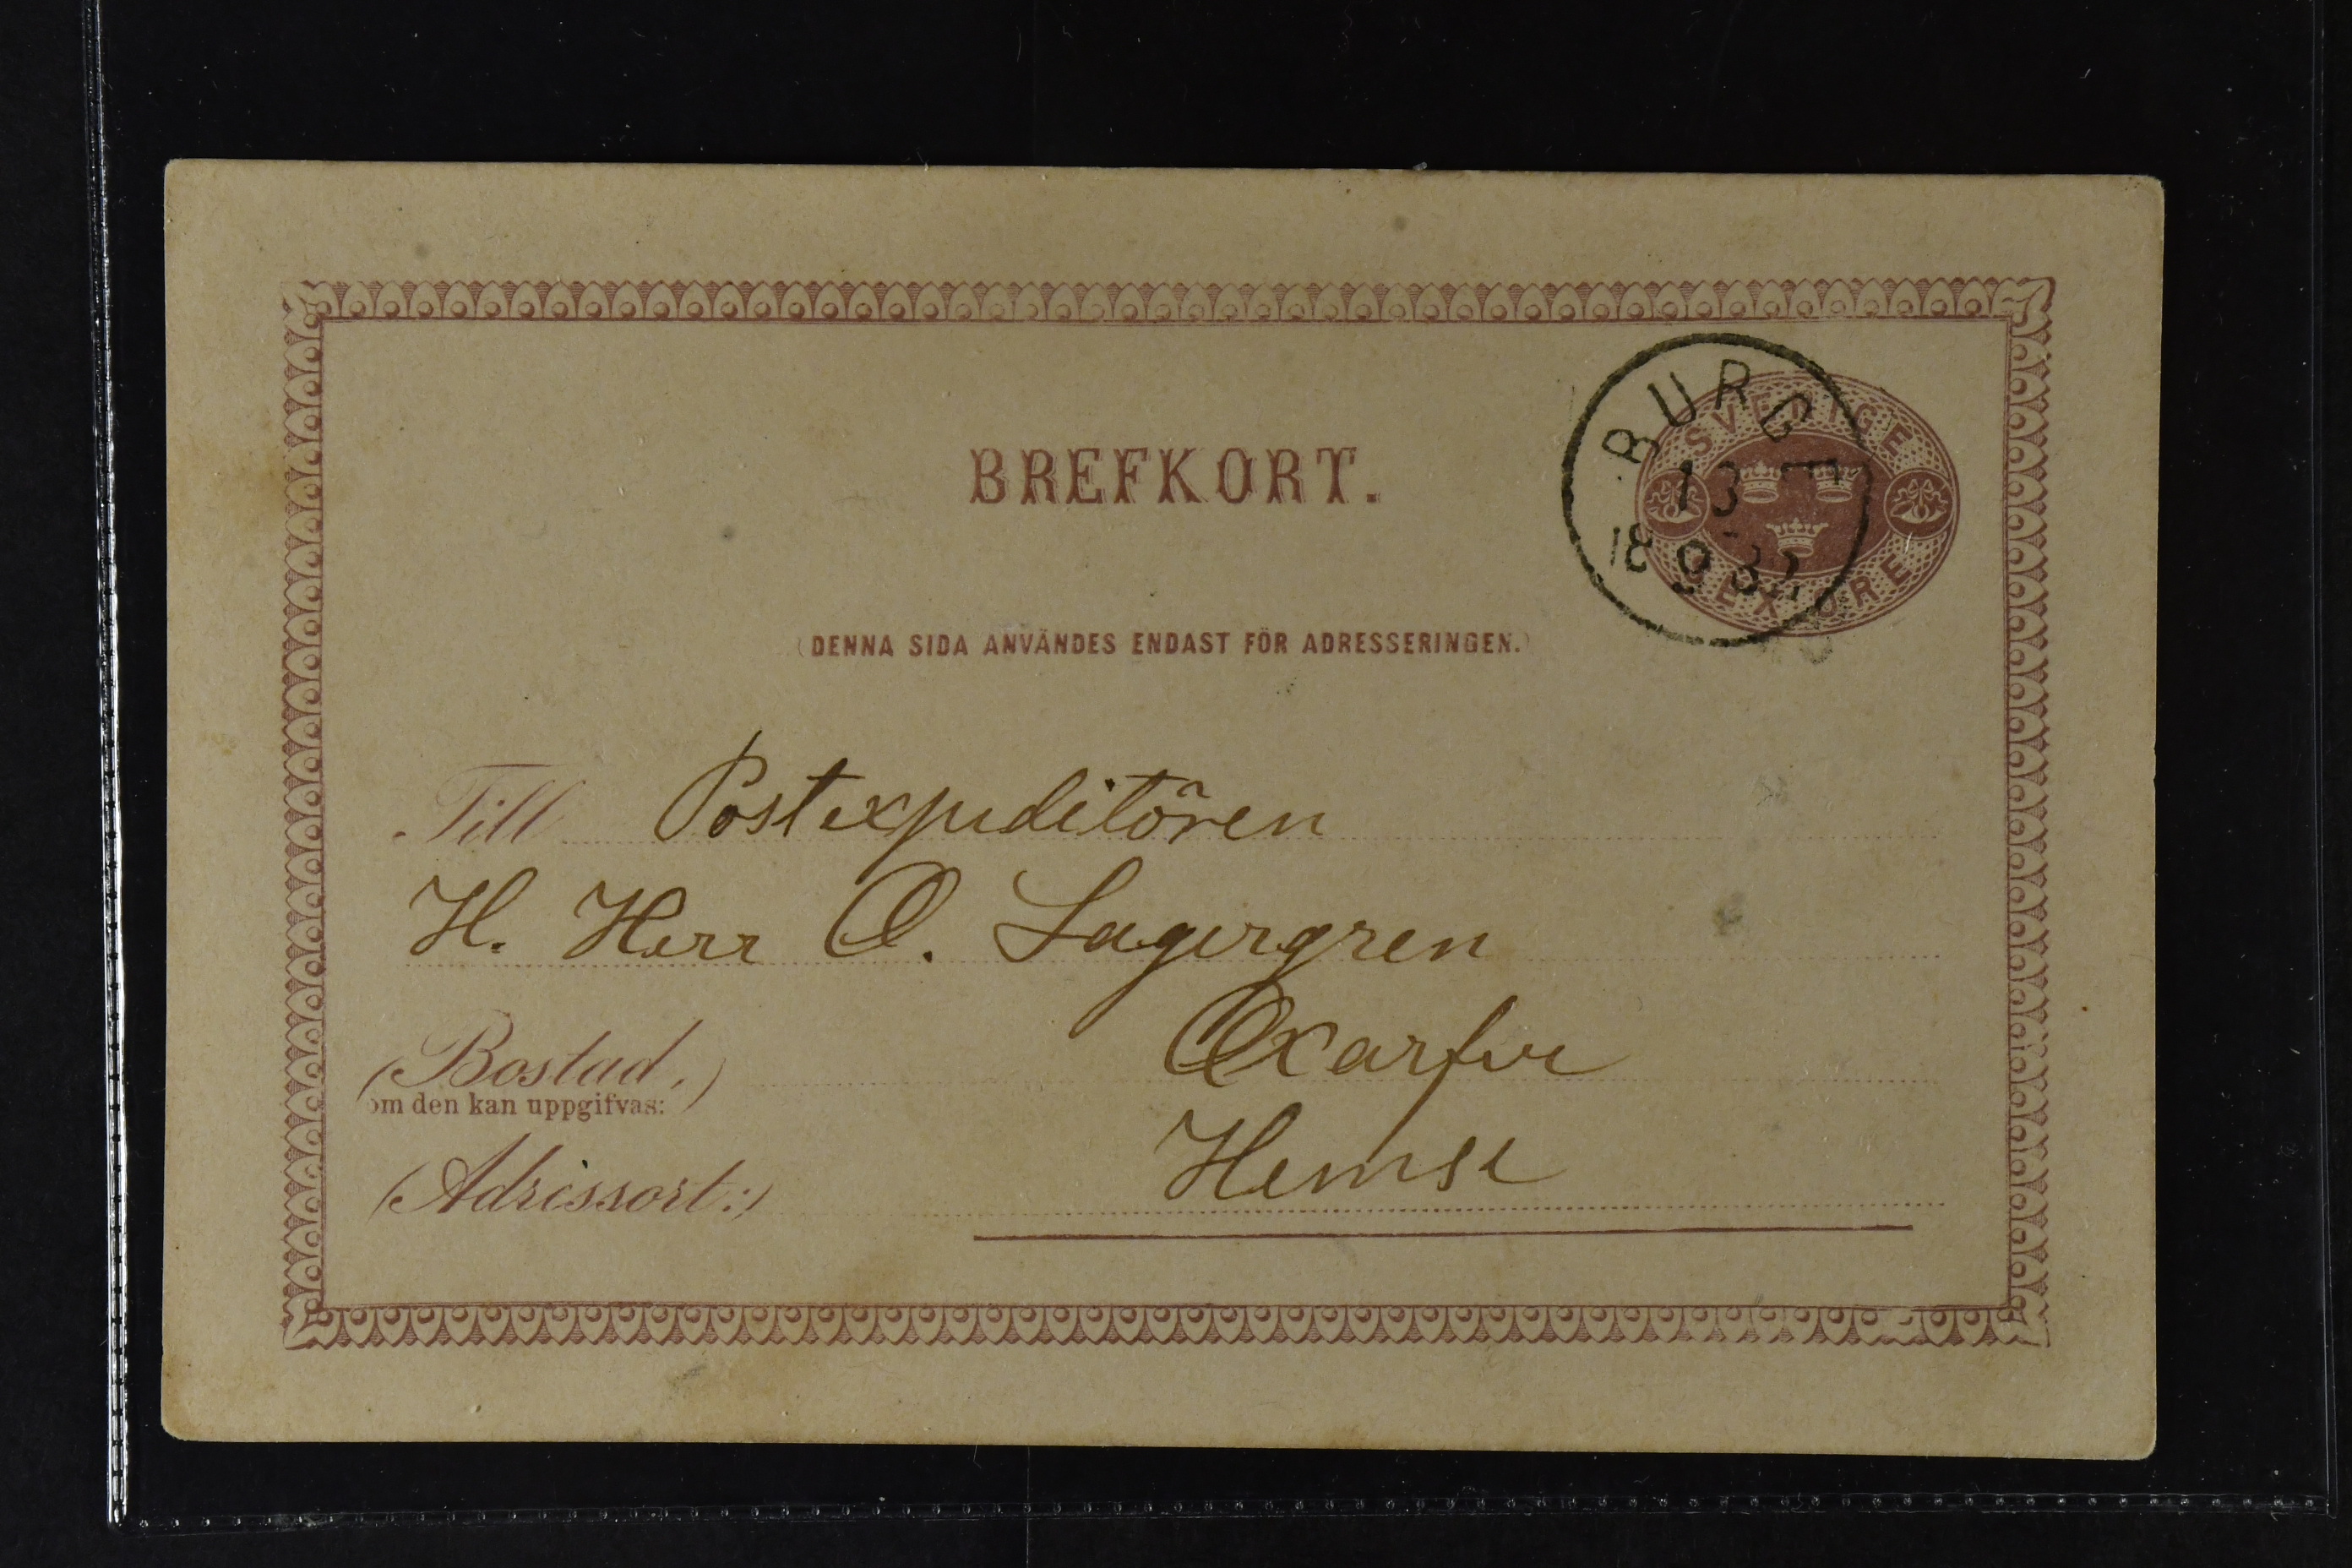 BURGE
13
18 9 82
SVERIGE
SEX ÖRE
BREFKORT.
(DENNA SIDA ANVÄNDES ENDAST FÖR ADRESSERINGEN.)
Till Postexpeditören
H. Herr O. Lagergren
(Bostad,) Oxarfve
om den kan uppgifvas:
(Adressort:) Hemse